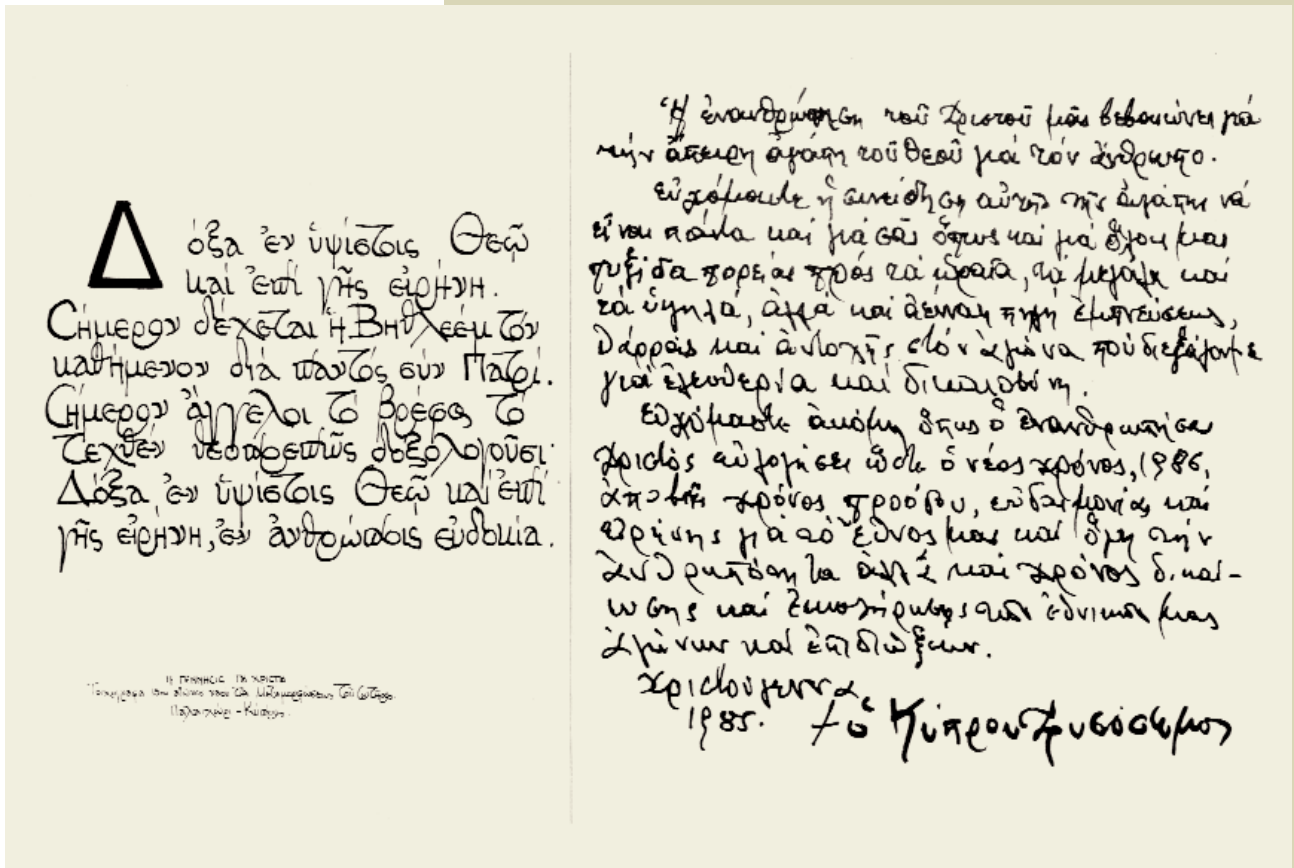 Δόξα ἐν ὑψίστοις Θεῷ
καί ἐπί γῆς εἰρήνη.
Σήμερον δέχεται ἡ Βηθλεέμ τόν
καθήμενον διά παντός σύν Πατρί.
Σήμερον ἄγγελοι τό βρέφος τό
τεχθέν θεοπρεπῶς δοξολογοῦσι·
Δόξα ἐν ὑψίστοις Θεῷ καί ἐπί
γῆς εἰρήνη, ἐν ἀνθρώποις εὐδοκία.
Ἡ ΓΕΝΝΗΣΙΣ ΤΟΥ ΧΡΙΣΤΟΥ
Τοιχογραφία αἰῶνος Μεταμορφώσεως τοῦ Σωτῆρος
Παλαιχώρι - Κύπρος.
Ἡ ἐνανθρώπηση τοῦ Χριστοῦ μᾶς βεβαιώνει γιά
τήν ἄπειρη ἀγάπη τοῦ Θεοῦ γιά τόν ἄνθρωπο.
Εὐχόμαστε ἡ συνείδηση αὐτῆς τῆς ἀγάπης νά
εἶναι πάντα καί γιά σᾶς ὅπως καί γιά ὅλους μας
πυξίδα πορείας πρός τά ὡραῖα, τά μεγάλα καί
τά ὑψηλά, ἀλλά καί ἀέναη πηγή ἐμπνεύσεως,
θάρρους καί ἀντοχῆς στόν ἀγώνα πού διεξάγουμε
γιά ἐλευθερία καί δικαιοσύνη.
Εὐχόμαστε ἀκόμη ὅπως ὁ ἐνανθρωπήσας
Χριστός εὐλογήσει ὥστε ὁ νέος χρόνος, 1986,
ἀποβῆ χρόνος προόδου, εὐδαιμονίας καί
εἰρήνης γιά τό ἔθνος μας καί ὅλη τήν
ἀνθρωπότητα ἀλλά καί χρόνος δικαί-
ωσης καί ἐκπλήρωσης τῶν ἐθνικῶν μας
ἀγώνων καί ἐπιδιώξεων.
Χριστούγεννα
1985. † ὁ Κύπρου Χρυσόστομος